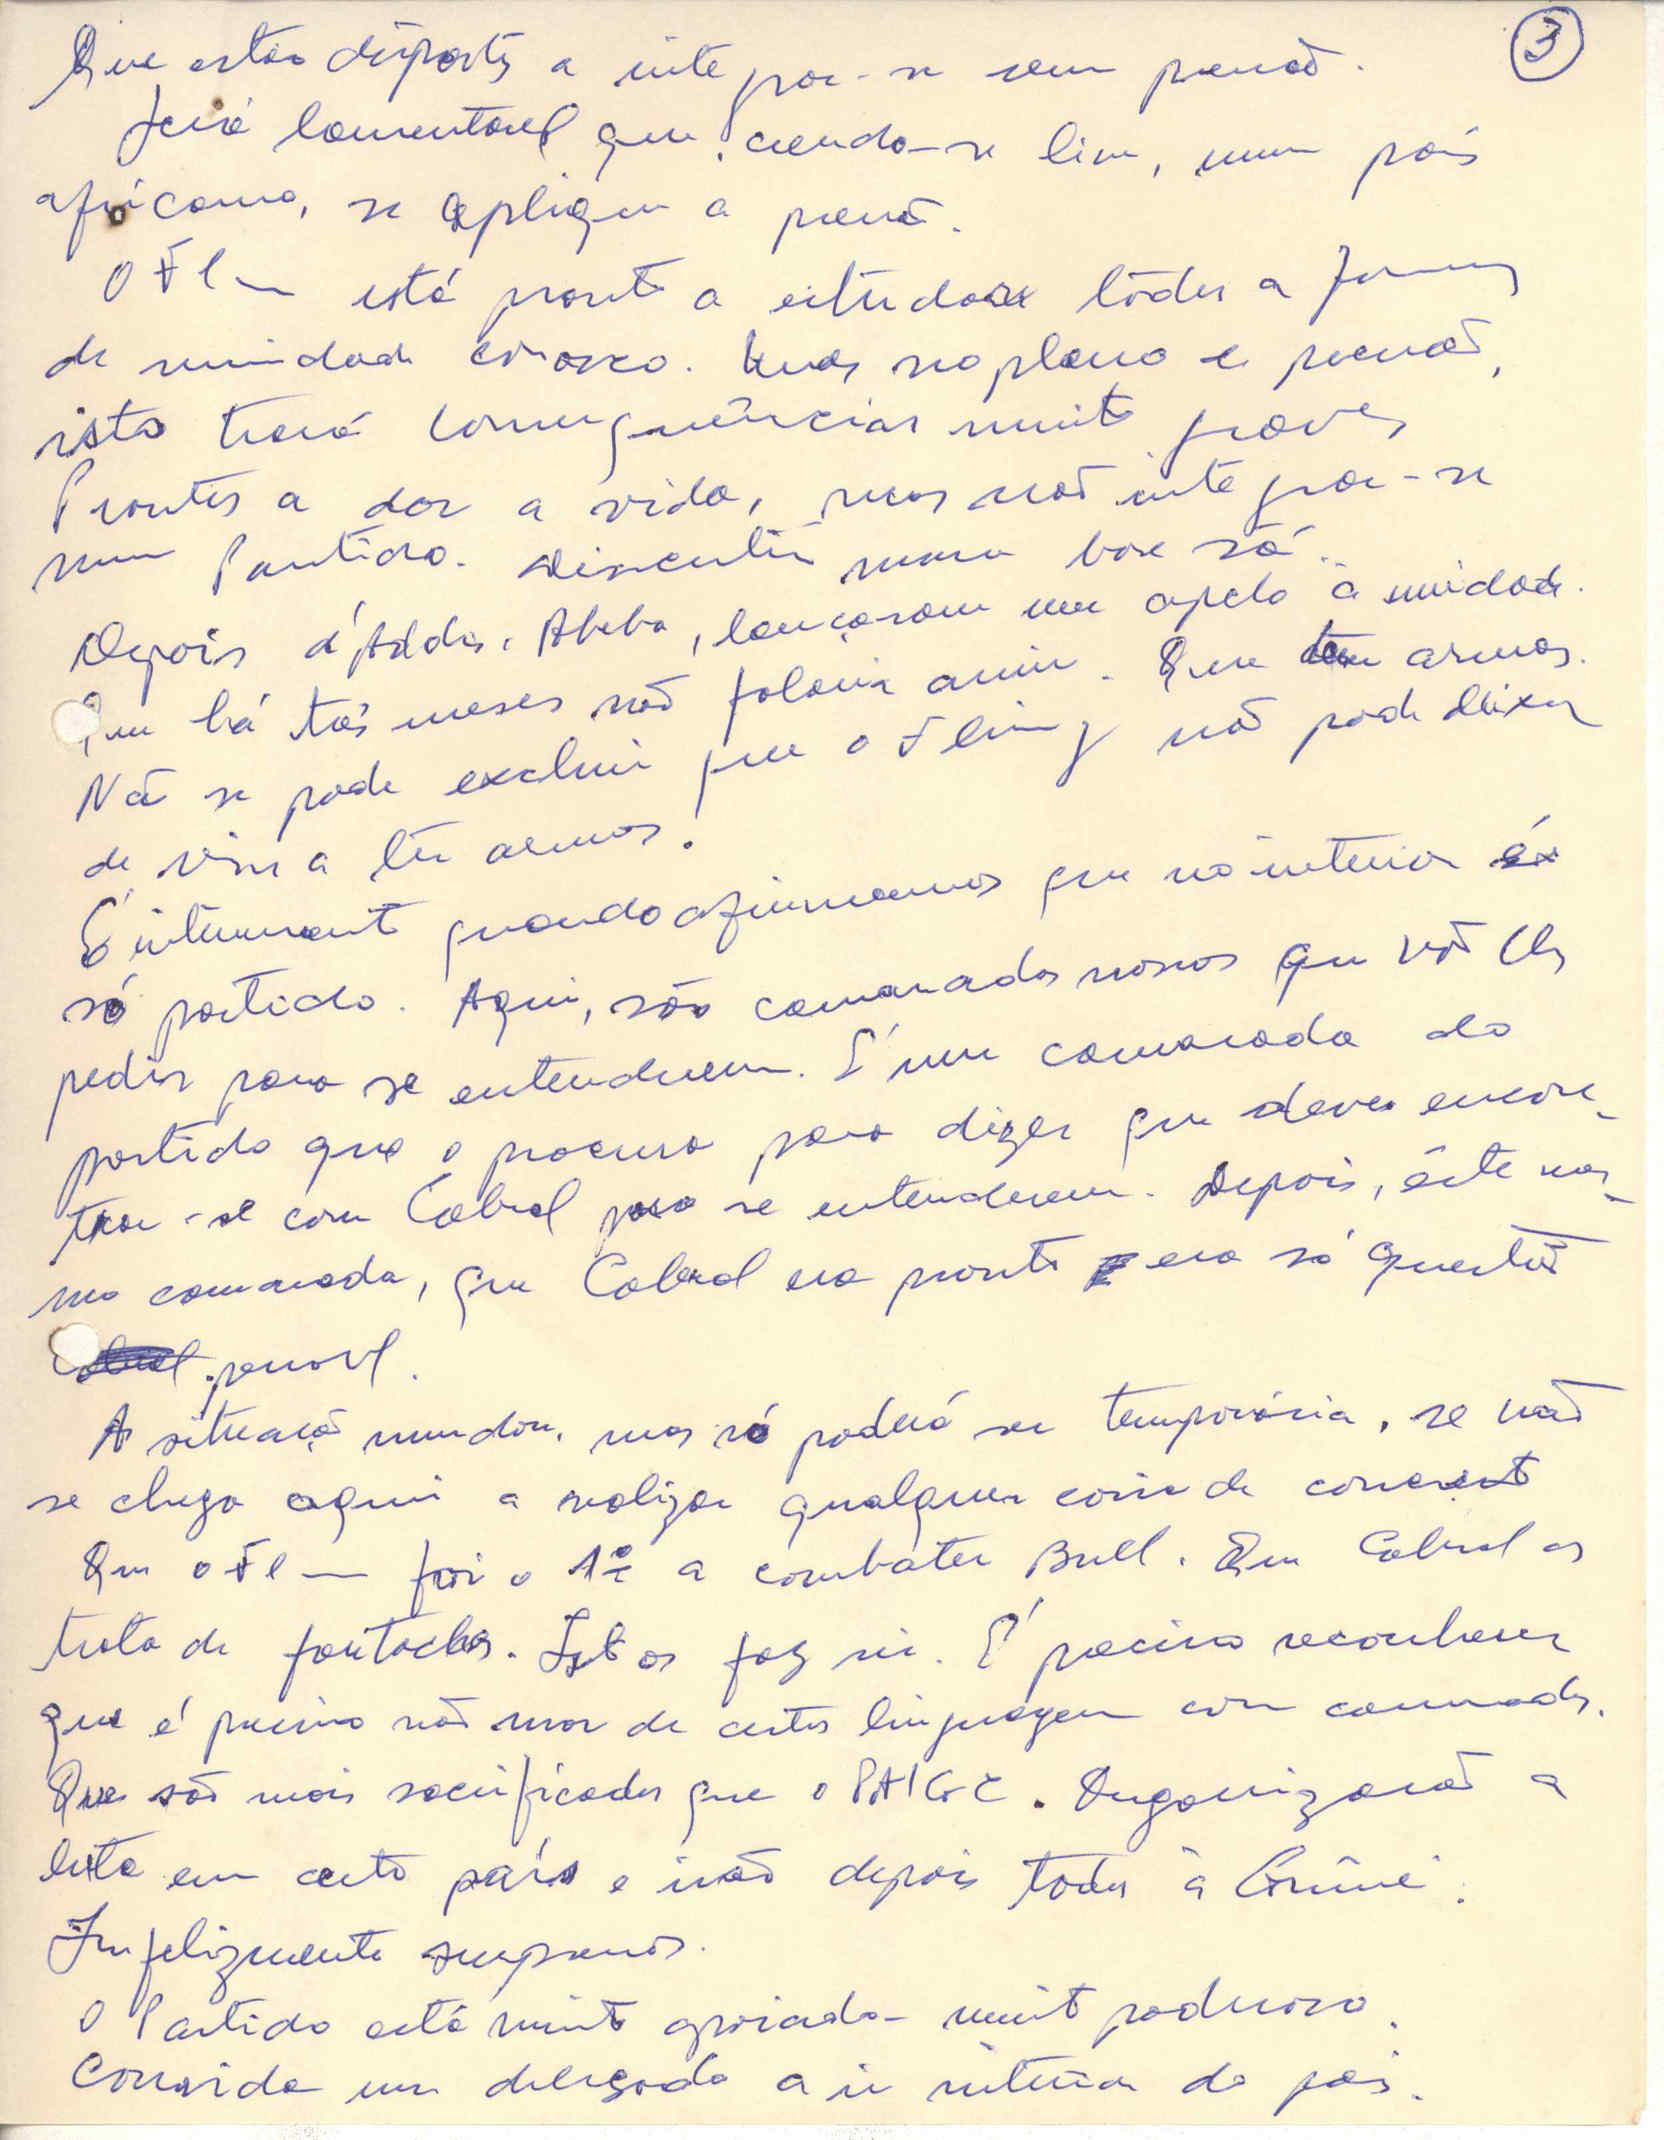 3
Que estão dispostos a integrar-se sem pressão.
Será lamentavel que, crendo-se livre, num país
africano, se aplique a pressão.
O Fl— está pronto a estudar todas as formas
de unidade conosco. Mas no plano de pressão,
isto trará consequências muito graves
Prontos a dar a vida, mas não integrar-se
num Partido. Discutir numa base sã.
Depois d'Addis. Abeba, lançaram um apelo à unidade.
Que há três meses não falaria assim. Que tem armas.
Não se pode excluir que o Fling não pode deixar
de vir a ter armas.
É interessante quando afirmamos que no interior é
só partido. Aqui, são camaradas nossos que vão lhes
pedir para se entenderem. É um camarada do
partido que o procura para dizer que deves encon-
trar-se com Cabral para se entenderem. Depois, êste mes-
mo camarada, que Cabral era pronto era só questão
pessoal.
A situação mudou, mas só poderá ser temporária, se não
se chega aqui a realizar qualquer coisa de concreto
Que o Fl— foi o 1º a combater Bull. Que Cabral os
trata de fantoches. Isto os faz rir. É preciso reconhecer
que é preciso não usar de certas linguagem com camaradas.
Que são mais sacrificados que o PAIGC. Organização a
luta em certo país e irão depois todos à Guiné.
Infelizmente
O Partido está muito apoiado - muito poderoso.
Convida um delegado a ir interior do país.